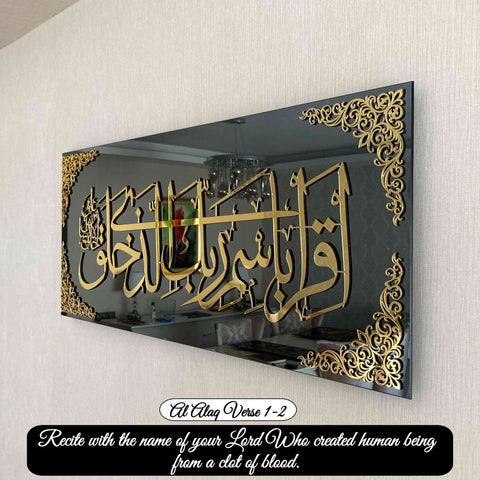 اقرأ باسم ربك الذي خلق
Al Alaq Verse 1-2
Recite with the name of your Lord Who created human being
from a clot of blood.